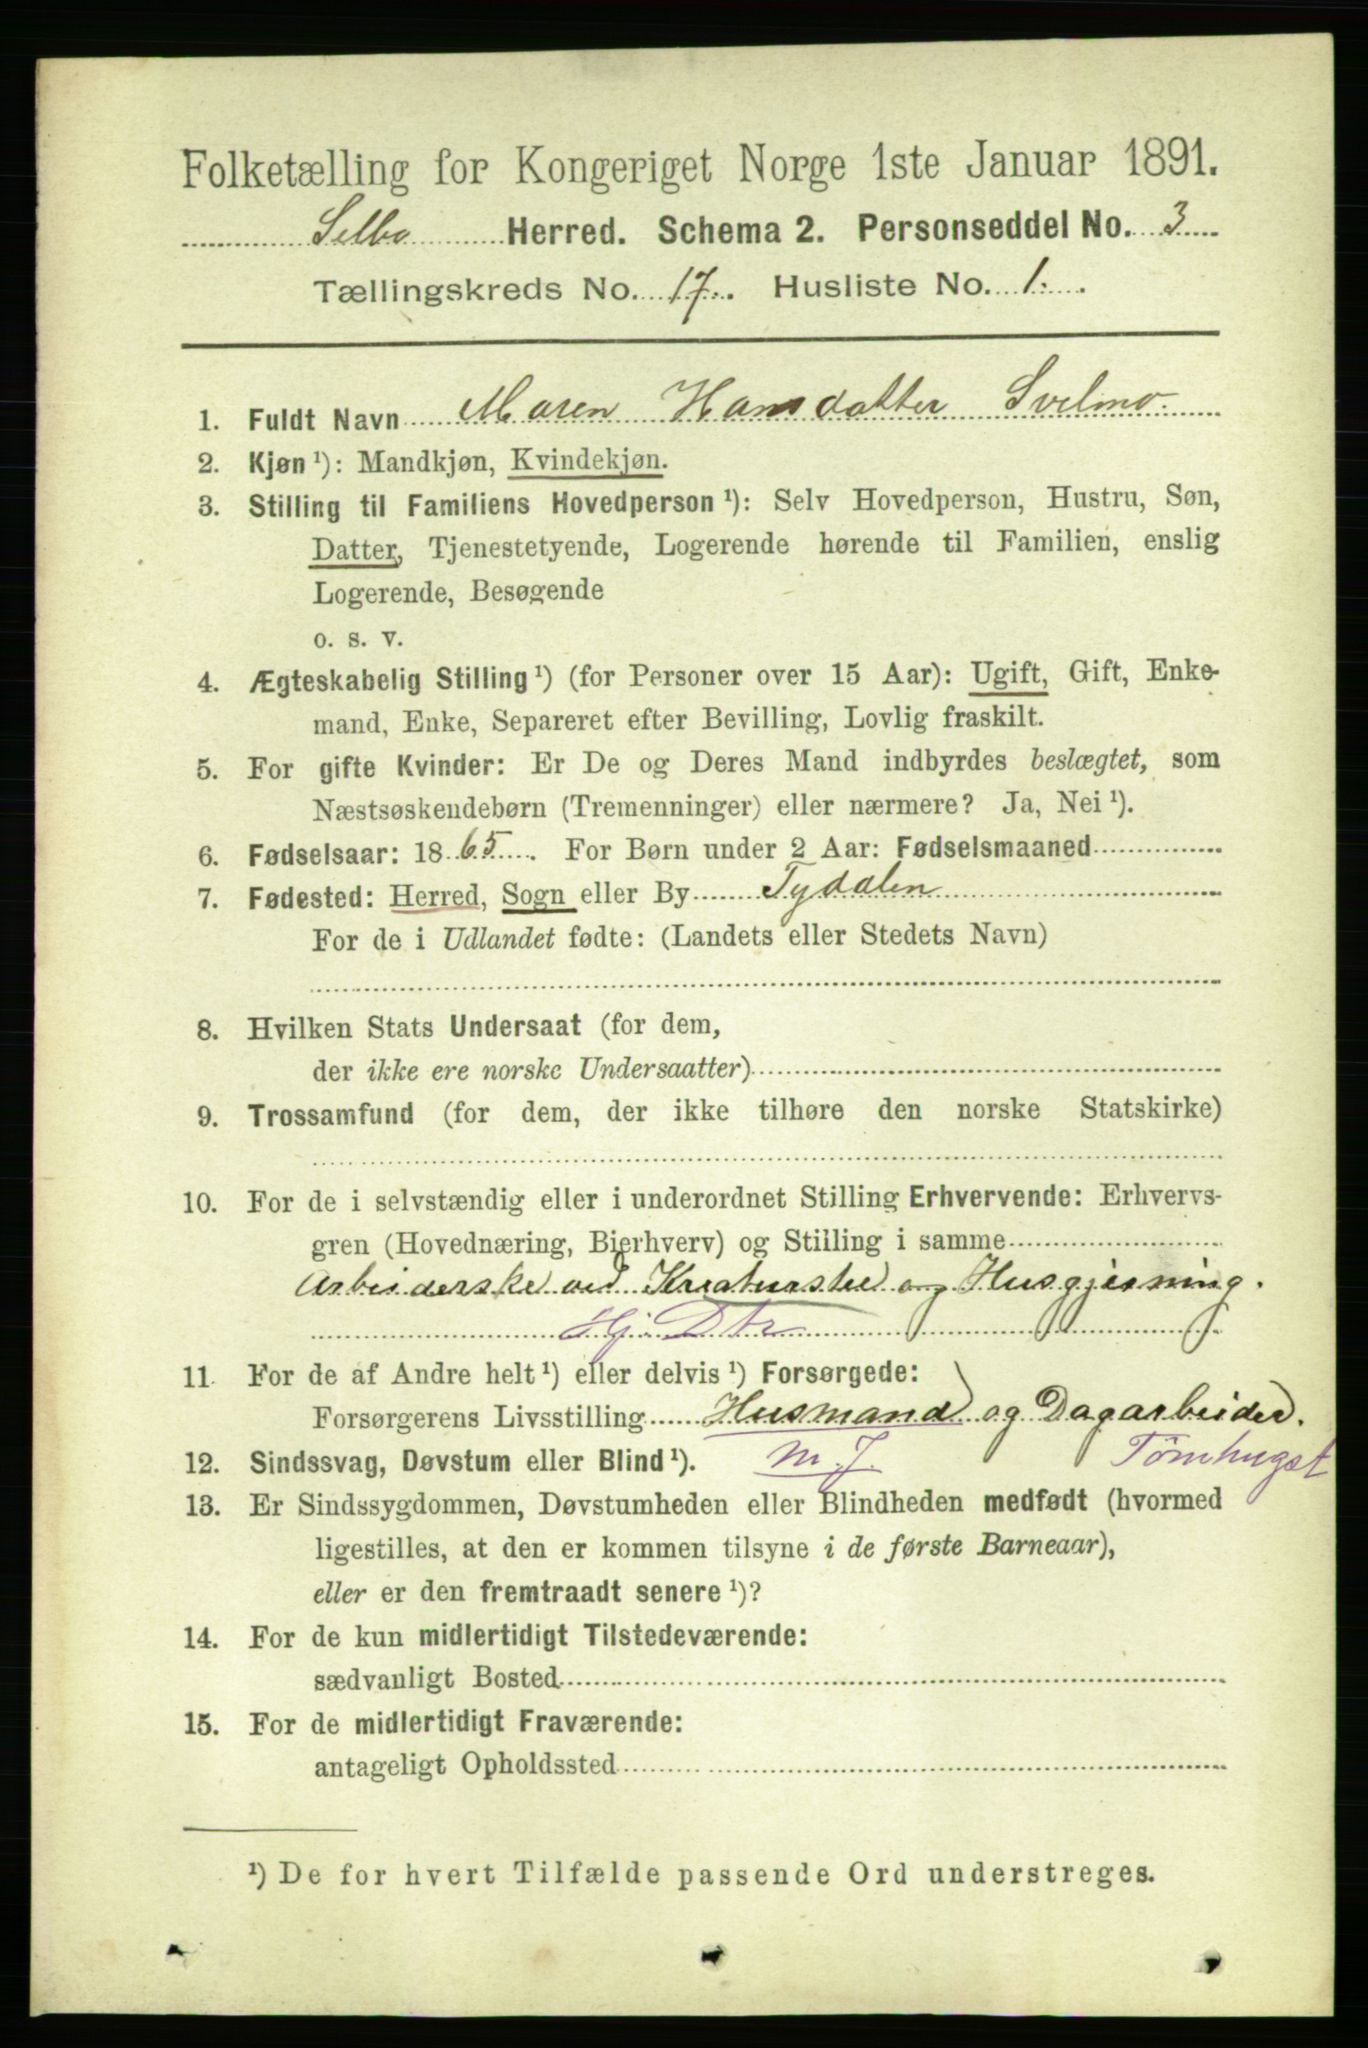 Folketælling for Kongeriget Norge 1ste Januar 1891.
Selbo Herred. Schema 2. Personseddel No. 3
Tællingskreds No. 17. Husliste No. 1.
1. Fuldt Navn Maren Hansdatter Svelmo.
2. Kjøn ¹): Mandkjøn, Kvindekjøn.
3. Stilling til Familiens Hovedperson ¹): Selv Hovedperson, Hustru, Søn,
Datter, Tjenestetyende, Logerende hørende til Familien, enslig
Logerende, Besøgende
o. s. v.
4. Ægteskabelig Stilling ¹) (for Personer over 15 Aar): Ugift, Gift, Enke-
mand, Enke, Separeret efter Bevilling, Lovlig fraskilt.
5. For gifte Kvinder: Er De og Deres Mand indbyrdes beslægtet, som
Næstsøskendebørn (Tremenninger) eller nærmere? Ja, Nei ¹).
6. Fødselsaar: 1865. For Børn under 2 Aar: Fødselsmaaned
7. Fødested: Herred, Sogn eller By Tydalen
For de i Udlandet fødte: (Landets eller Stedets Navn)
8. Hvilken Stats Undersaat (for dem,
der ikke ere norske Undersaatter)
9. Trossamfund (for dem, der ikke tilhøre den norske Statskirke)
10. For de i selvstændig eller i underordnet Stilling Erhvervende: Erhvervs-
gren (Hovednæring, Bierhverv) og Stilling i samme
Arbeiderske ved Kreaturstel og Husgjerning.
Hj. Dtr
11. For de af Andre helt ¹) eller delvis ¹) Forsørgede:
Forsørgerens Livsstilling Husmand og Dagarbeider.
12. Sindssvag, Døvstum eller Blind ¹). m. J. Tömhugst
13. Er Sindssygdommen, Døvstumheden eller Blindheden medfødt (hvormed
ligestilles, at den er kommen tilsyne i de første Barneaar),
eller er den fremtraadt senere ¹)?
14. For de kun midlertidigt Tilstedeværende:
sædvanligt Bosted
15. For de midlertidigt Fraværende:
antageligt Opholdssted
¹) De for hvert Tilfælde passende Ord understreges.